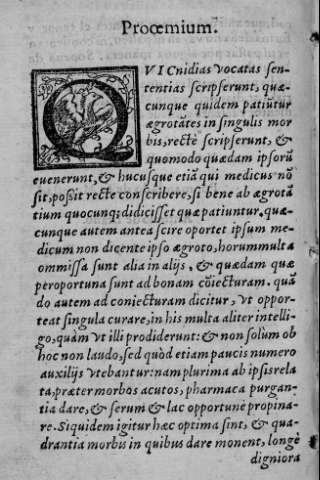 Prooemium.
QVI Cnidias vocatas ſen-
tentias ſcripſerunt, quæ-
cunque quidem patiũtur
ægrotãtes in ſingulis mor
bis, recte ſcripſerunt, &
quomodo quædam ipſorũ
euenerunt, & hucuſque etiã qui medicus nõ
ſit, poſsit recte conſcribere, ſi bene ab ægrotã
tium quocunq; didiciſſet quæ patiuntur. quæ-
cunque autem antea ſcire oportet ipſum me-
dicum non dicente ipſo ægroto, horum multa
ommiſſa ſunt alia in alijs, & quædam quæ
peroportuna ſunt ad bonam cõiecturam. quã
do autem ad coniecturam dicitur, vt opor-
teat ſingula curare, in his multa aliter intelli-
go, quàm vt illi prodiderunt: & non ſolùm ob
hoc non laudo, ſed quòd etiam paucis numero
auxilijs vtebantur: nam plurima ab ipſis rela
ta, præter morbos acutos, pharmaca purgan-
tia dare, & ſerum & lac opportunè propina-
re. Si quidem igitur hæc optima ſint, & qua-
drantia morbis in quibus dare monent, longè
digniora